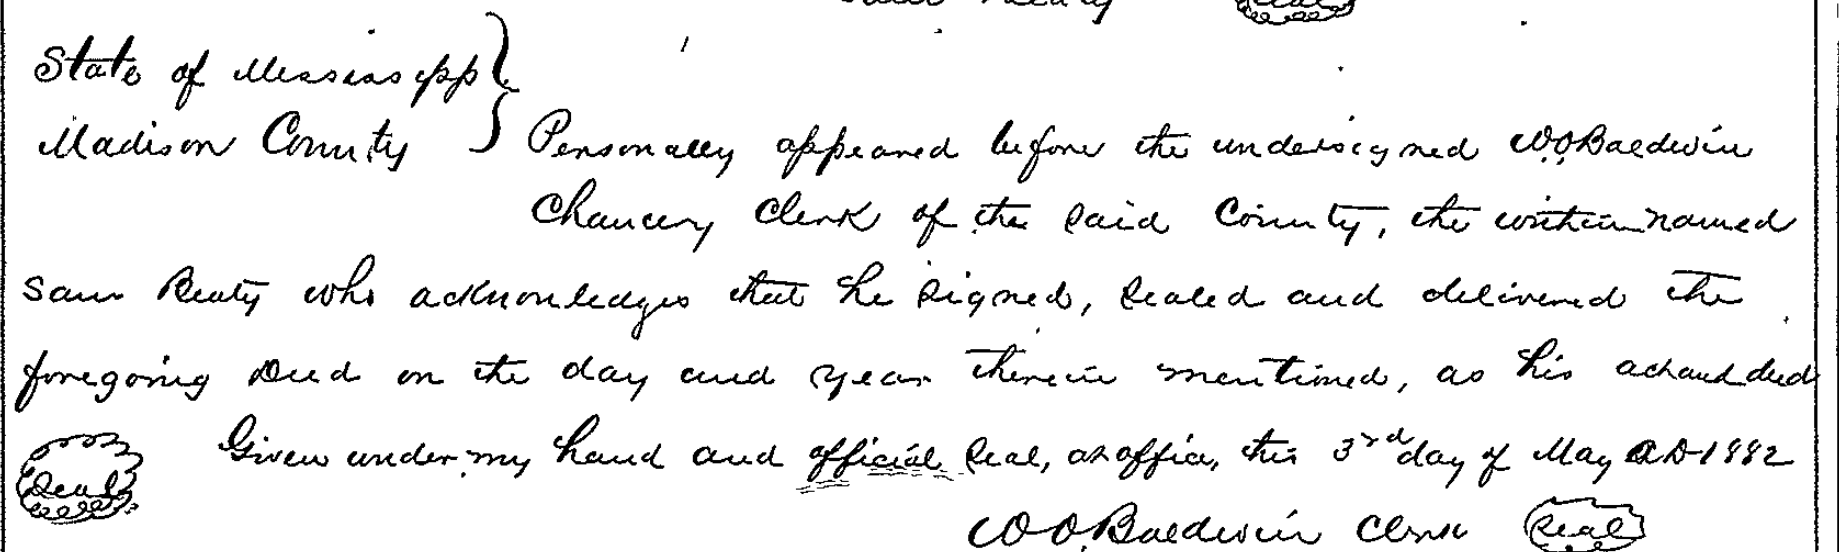 Seal
State of Mississipp
Madison County } Personally appeared before the undersigned W.O. Baldwin
Chancery Clerk of the said County, the within named
Sam Beaty who acknowledges that he signed, sealed and delivered the
foregoing Deed on the day and year therein mentioned, as his act and deed
Given under my hand and official seal, at office, this 3rd day of May A D 1882
Seal
W O. Baldwin Clerk Seal